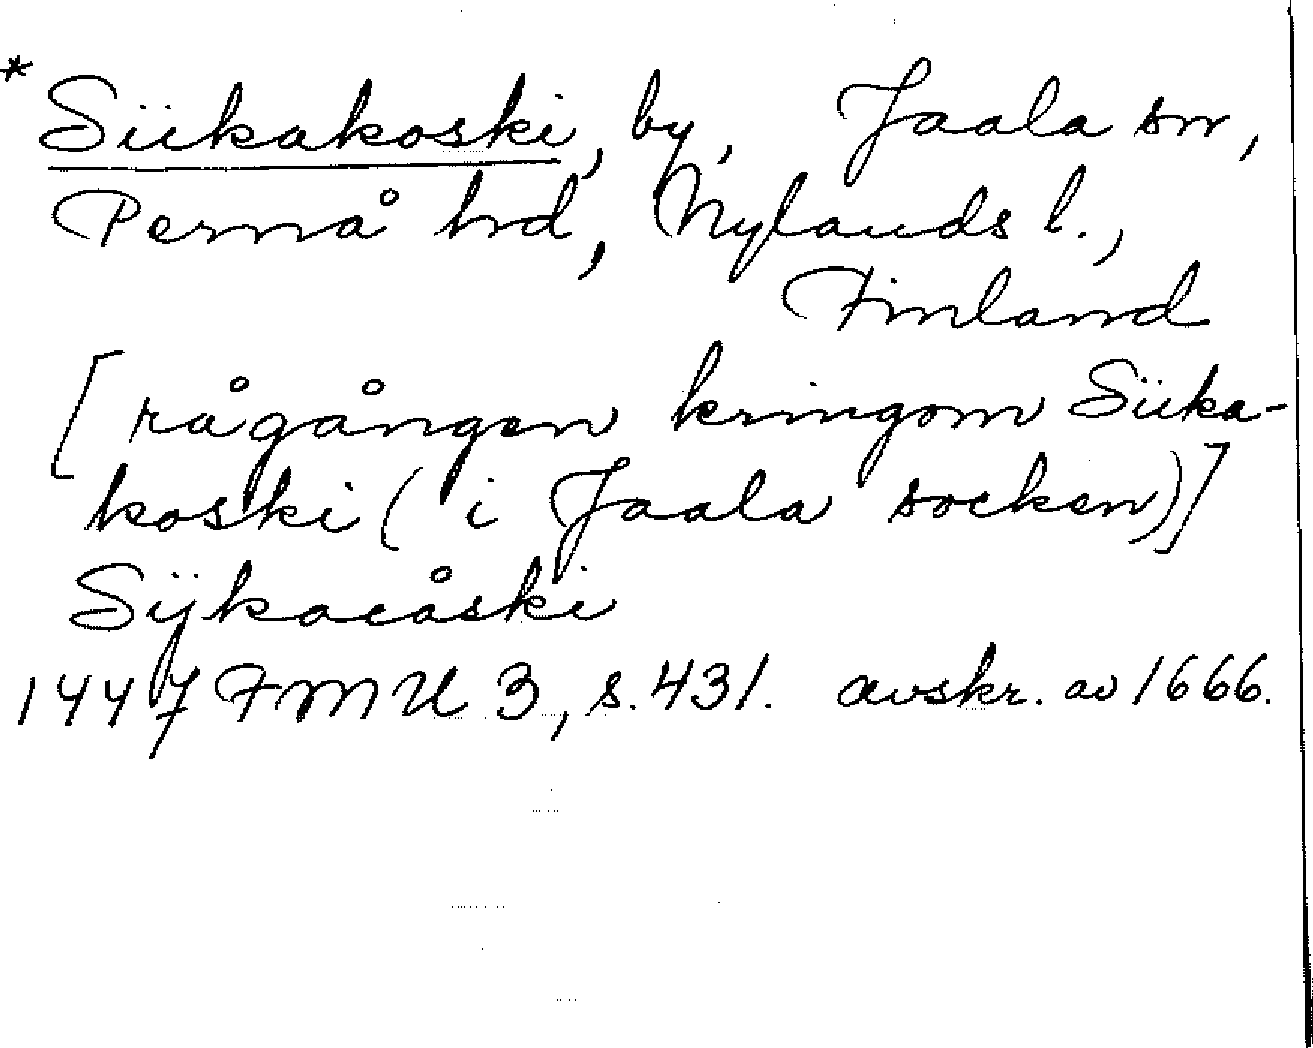 * Siikakoski, by, Jaala sn,
Pernå hrd, Nylands l.,
Finland
[rågången kringom Siika-
koski (i Jaala socken)]
Sijkacåski
1447 FMU 3, s. 431. avskr. av 1666.